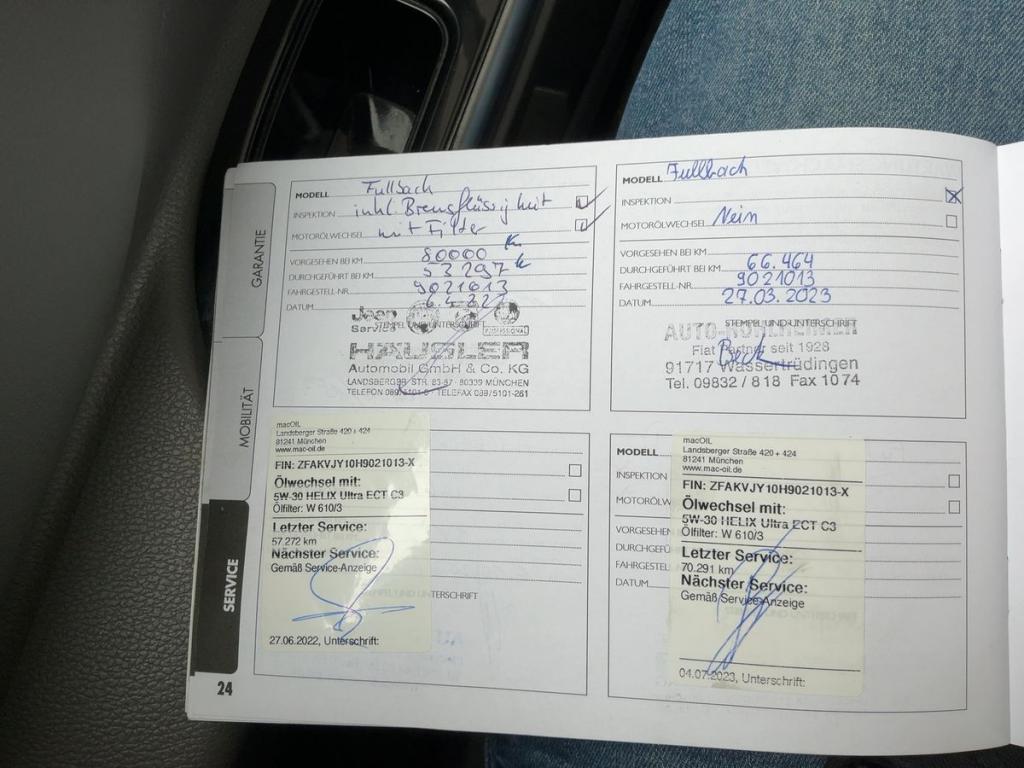 GARANTIE
MOBILITÄT
SERVICE
24
MODELL Fullback
INSPEKTION inkl. Bremsflüssigkeit
MOTORÖLWECHSEL mit Filter
VORGESEHEN BEI KM 80000
DURCHGEFÜHRT BEI KM 53297
FAHRGESTELL-NR. 9021013
DATUM
STEMPEL UND UNTERSCHRIFT
Jeep
Service
PROFESSIONAL
HÄUSLER
Automobil GmbH & Co. KG
LANDSBERGER STR. 83-87 · 80339 MÜNCHEN
TELEFON 089/5101-0 · TELEFAX 089/5101-261
MODELL Fullback
INSPEKTION
MOTORÖLWECHSEL Nein
VORGESEHEN BEI KM
DURCHGEFÜHRT BEI KM 66.464
FAHRGESTELL-NR. 9021013
DATUM 27.03.2023
STEMPEL UND UNTERSCHRIFT
Fiat Partner seit 1928
Beck
91717 Wassertrüdingen
Tel. 09832 / 818 Fax 1074
macOIL
Landsberger Straße 420 + 424
81241 München
www.mac-oil.de
FIN: ZFAKVJY10H9021013-X
Ölwechsel mit:
5W-30 HELIX Ultra ECT C3
Ölfilter: W 610/3
Letzter Service:
57.272 km
Nächster Service:
Gemäß Service-Anzeige
27.06.2022, Unterschrift:
UNTERSCHRIFT
MODELL
INSPEKTION
MOTORÖLW
VORGESEHEN
DURCHGEFÜ
FAHRGESTEL
DATUM
macOIL
Landsberger Straße 420 + 424
81241 München
www.mac-oil.de
FIN: ZFAKVJY10H9021013-X
Ölwechsel mit:
5W-30 HELIX Ultra ECT C3
Ölfilter: W 610/3
Letzter Service:
70.291 km
Nächster Service:
Gemäß Service-Anzeige
04.07.2023, Unterschrift: